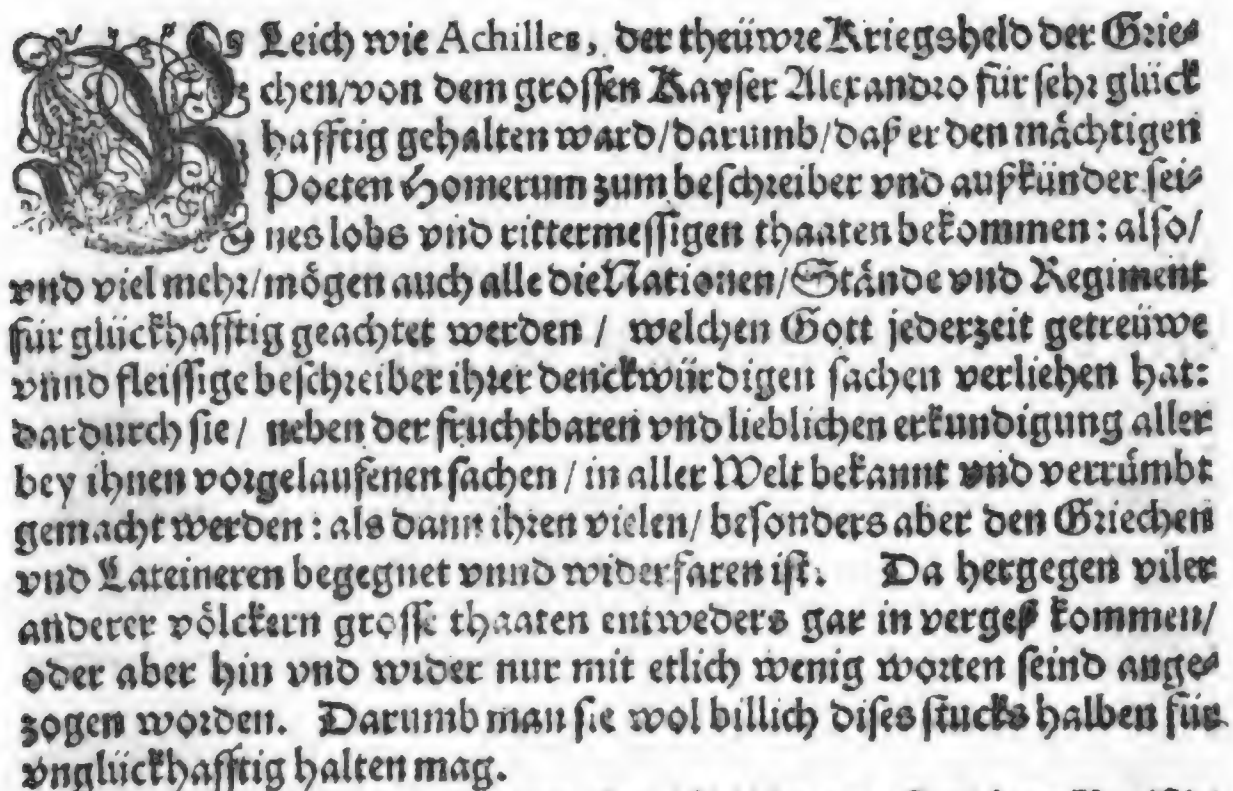 GLeich wie Achilles, der theüwre Kriegsheld der Grie⸗
chen/von dem grossen Kayser Alexandro für sehr glück
hafftig gehalten ward/darumb/daß er den mächtigen
Poeten Homerum zum beschreiber vnd außkünder sei⸗
nes lobs vnd rittermessigen thaaten bekommen: also/
vnd viel mehr/mögen auch alle die Nationen/Stände vnd Regiment
für glückhafftig geachtet werden / welchen Gott jederzeit getreüwe
vnnd fleissige beschreiber ihrer denckwürdigen sachen verliehen hat:
dardurch sie / neben der fruchtbaren vnd lieblichen erkundigung aller
bey ihnen vorgelaufenen sachen / in aller Welt bekannt vnd verrümbt
gemacht werden: als dann ihren vielen/ besonders aber den Griechen
vnd Lateineren begegnet vnnd widerfaren ist. Da hergegen viler
anderer völckern grosse thaaten entweders gar in vergeß kommen/
oder aber hin vnd wider nur mit etlich wenig worten seind ange⸗
zogen worden. Darumb man sie wol billich dises stucks halben für
vnglückhafftig halten mag.